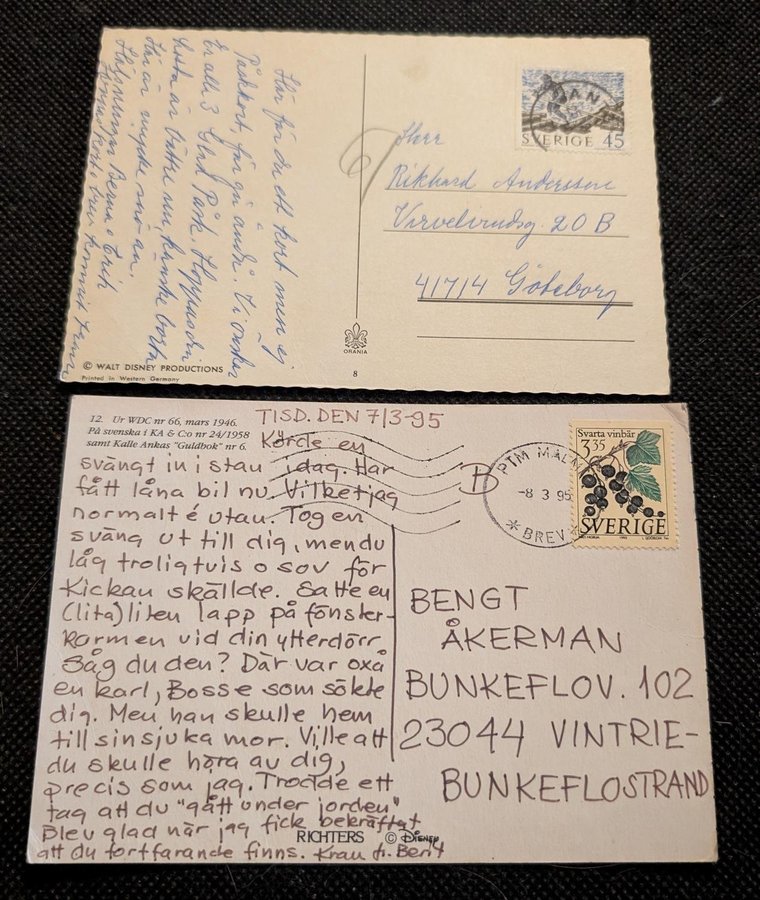 Här får du ett kort men ej
Påskkort, får gå ändå. Vi önskar
Er alla 3 Glad Påsk. Hoppas din
hosta är bättre nu, kanske borta
Här är mycket snö än.
Hälsningar Berna o Erik
kort o brev kommit fram
© WALT DISNEY PRODUCTIONS
Printed in Western Germany
ORANIA
8
SVERIGE 45
Herr
Rikhard Andersson
Virvelvindsg. 20 B
41714 Göteborg
12. Ur WDC nr 66, mars 1946.
På svenska i KA & C:o nr 24/1958
samt Kalle Ankas "Guldbok" nr 6.
TISD. DEN 7/3-95
Körde en
svängt in i stan idag. Har
fått låna bil nu. Vilket jag
normalt é utan. Tog en
sväng ut till dig, men du
låg troligtvis o sov för
Kickan skällde. Satte en
(lita) liten lapp på fönster-
karmen vid din ytterdörr.
Såg du den? Där var oxå
en karl, Bosse som sökte
dig. Men han skulle hem
till sin sjuka mor. Ville att
du skulle höra av dig,
precis som jag. Trodde ett
tag att du "gått under jorden"
Blev glad när jag fick bekräftat
att du fortfarande finns. Kram fr. Berit
RICHTERS © Disney
PTM MALM
-8 3 95
BREV
Svarta vinbär
3.35
SVERIGE
BENGT
ÅKERMAN
BUNKEFLOV. 102
23044 VINTRIE-
BUNKEFLOSTRAND